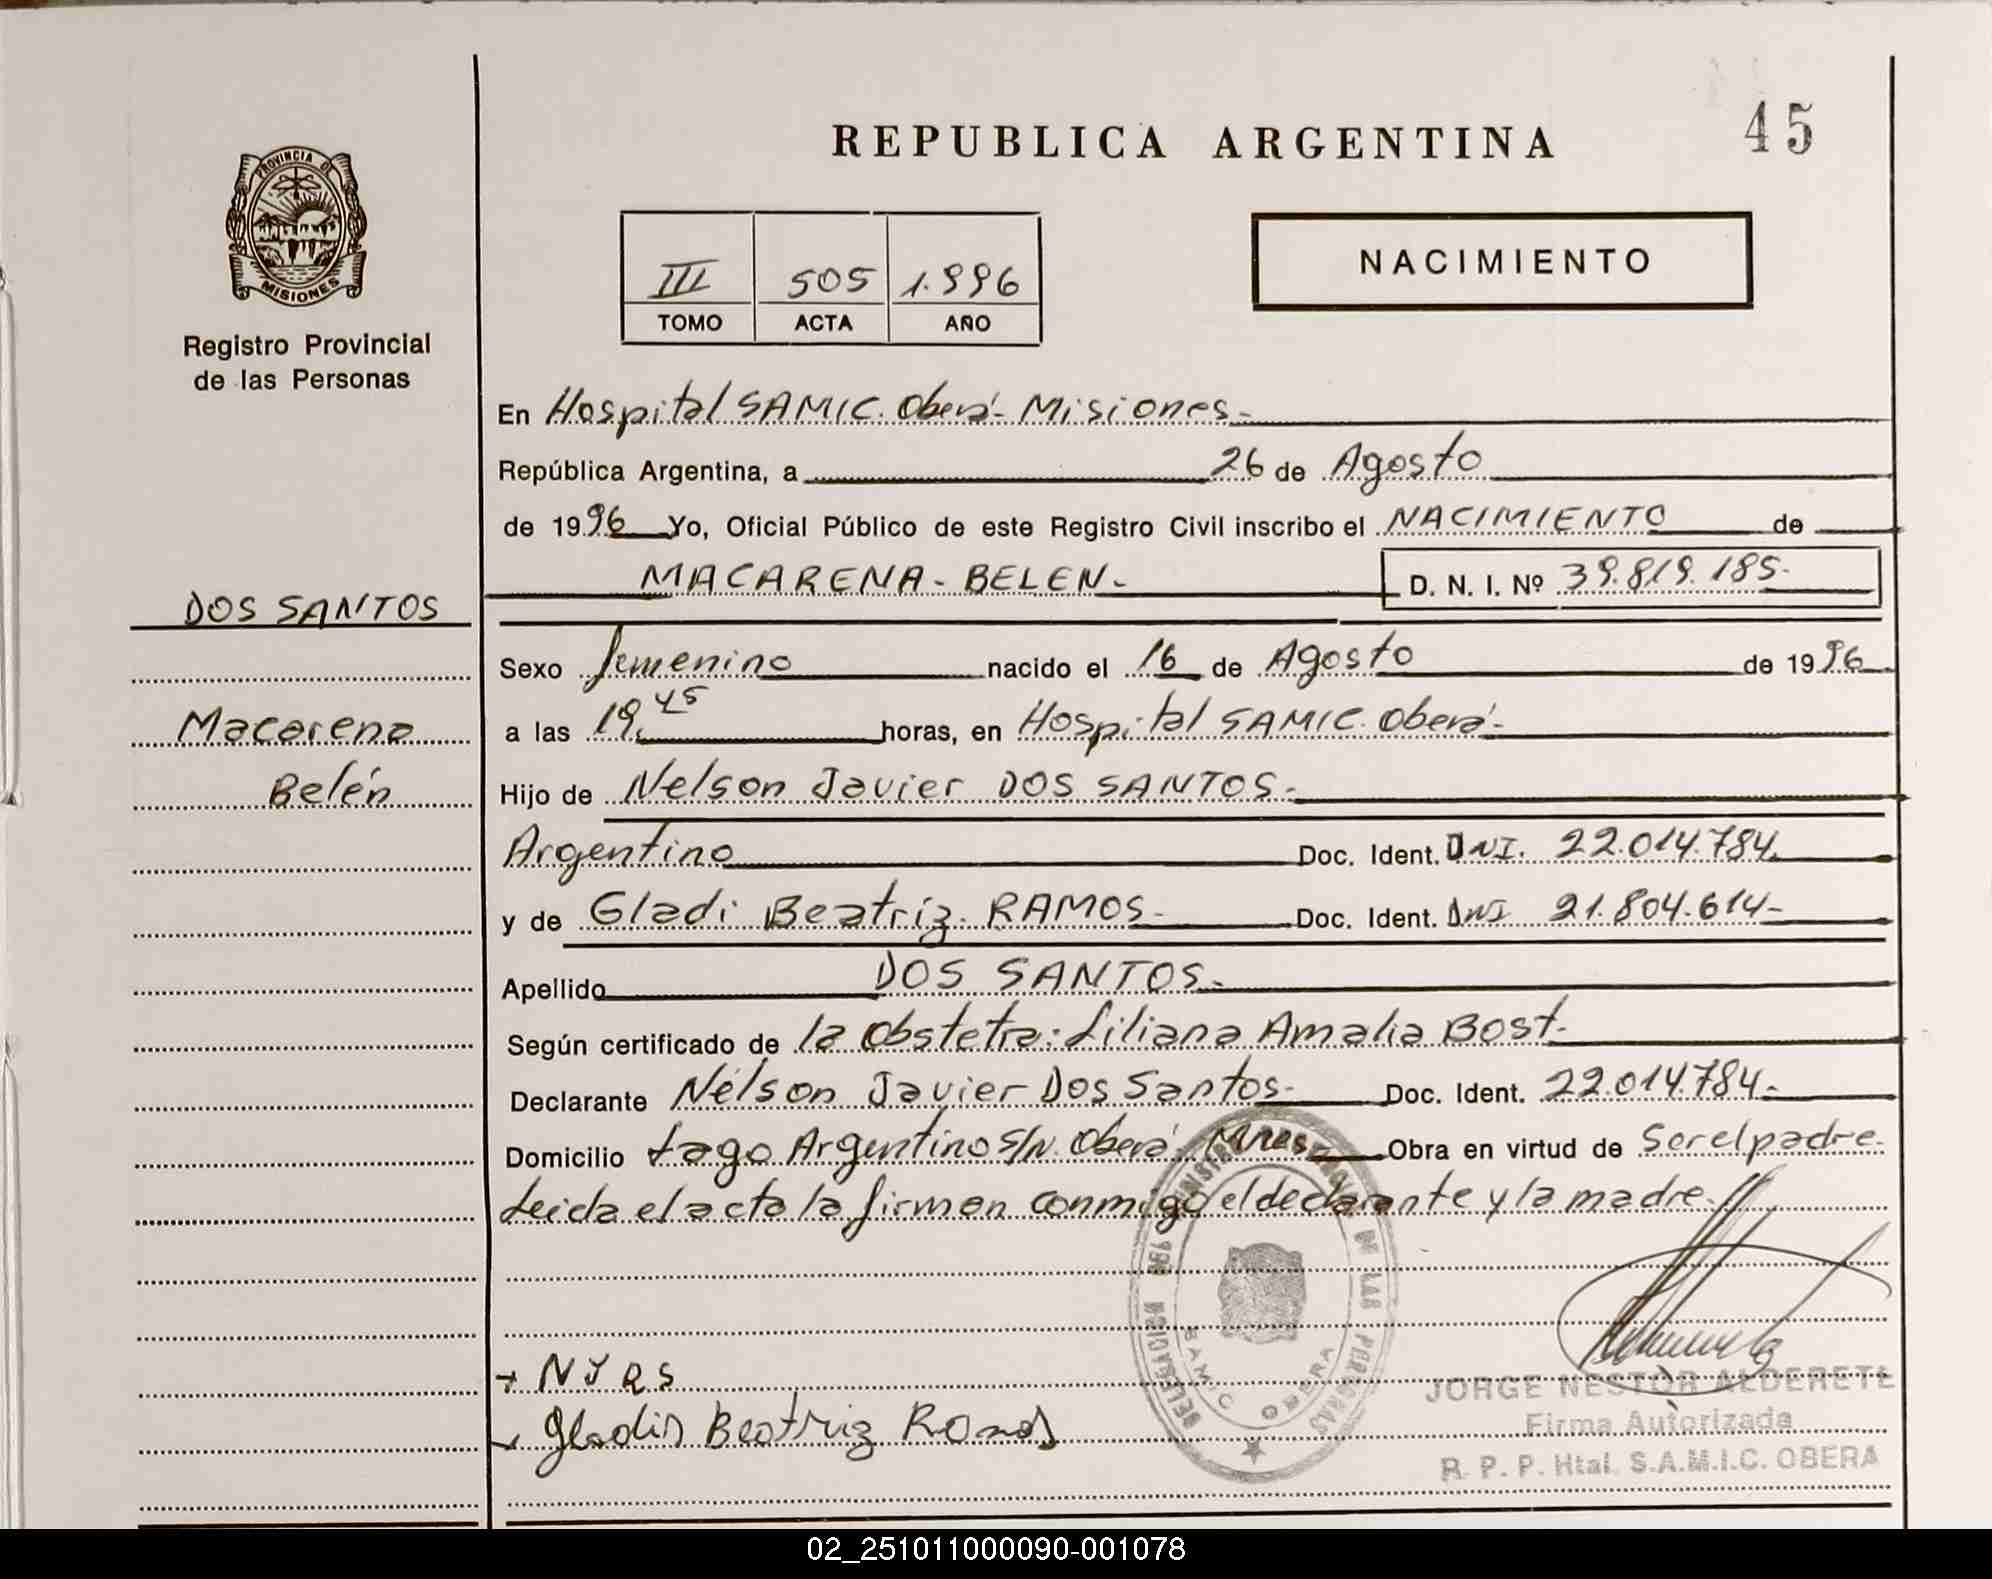 45
REPUBLICA ARGENTINA
PROVINCIA DE
MISIONES
Registro Provincial
de las Personas
III 505 1.996
TOMO ACTA AÑO
NACIMIENTO
En Hospital SAMIC. Oberá- Misiones-
República Argentina, a 26 de Agosto
de 1996 Yo, Oficial Público de este Registro Civil inscribo el NACIMIENTO de
MACARENA- BELEN- D. N. I. Nº 39.819.185-
DOS SANTOS
Sexo femenino nacido el 16 de Agosto de 1996
Macarena
Belén
a las 19,45 horas, en Hospital SAMIC. Oberá-
Hijo de Nelson Javier DOS SANTOS-
Argentino Doc. Ident. DNI. 22.014.784.
y de Gladi Beatríz. RAMOS- Doc. Ident. DNI 21.804.614-
Apellido DOS SANTOS-
Según certificado de la Obstetra: Liliana Amalia Bost-
Declarante Nélson Javier Dos Santos- Doc. Ident. 22.014.784-
Domicilio Lago Argentino S/N. Oberá- Mnes- Obra en virtud de Ser el padre.
Leida el acta la firman conmigo el declarante y la madre.//
DELEGACION
DE LAS PERSONAS
SAMIC OBERA
NJRS
Gladis Beatriz Ramos
JORGE NESTOR ALDERETE
Firma Autorizada
R. P. P. Htal. S.A.M.I.C. OBERA
02_251011000090-001078